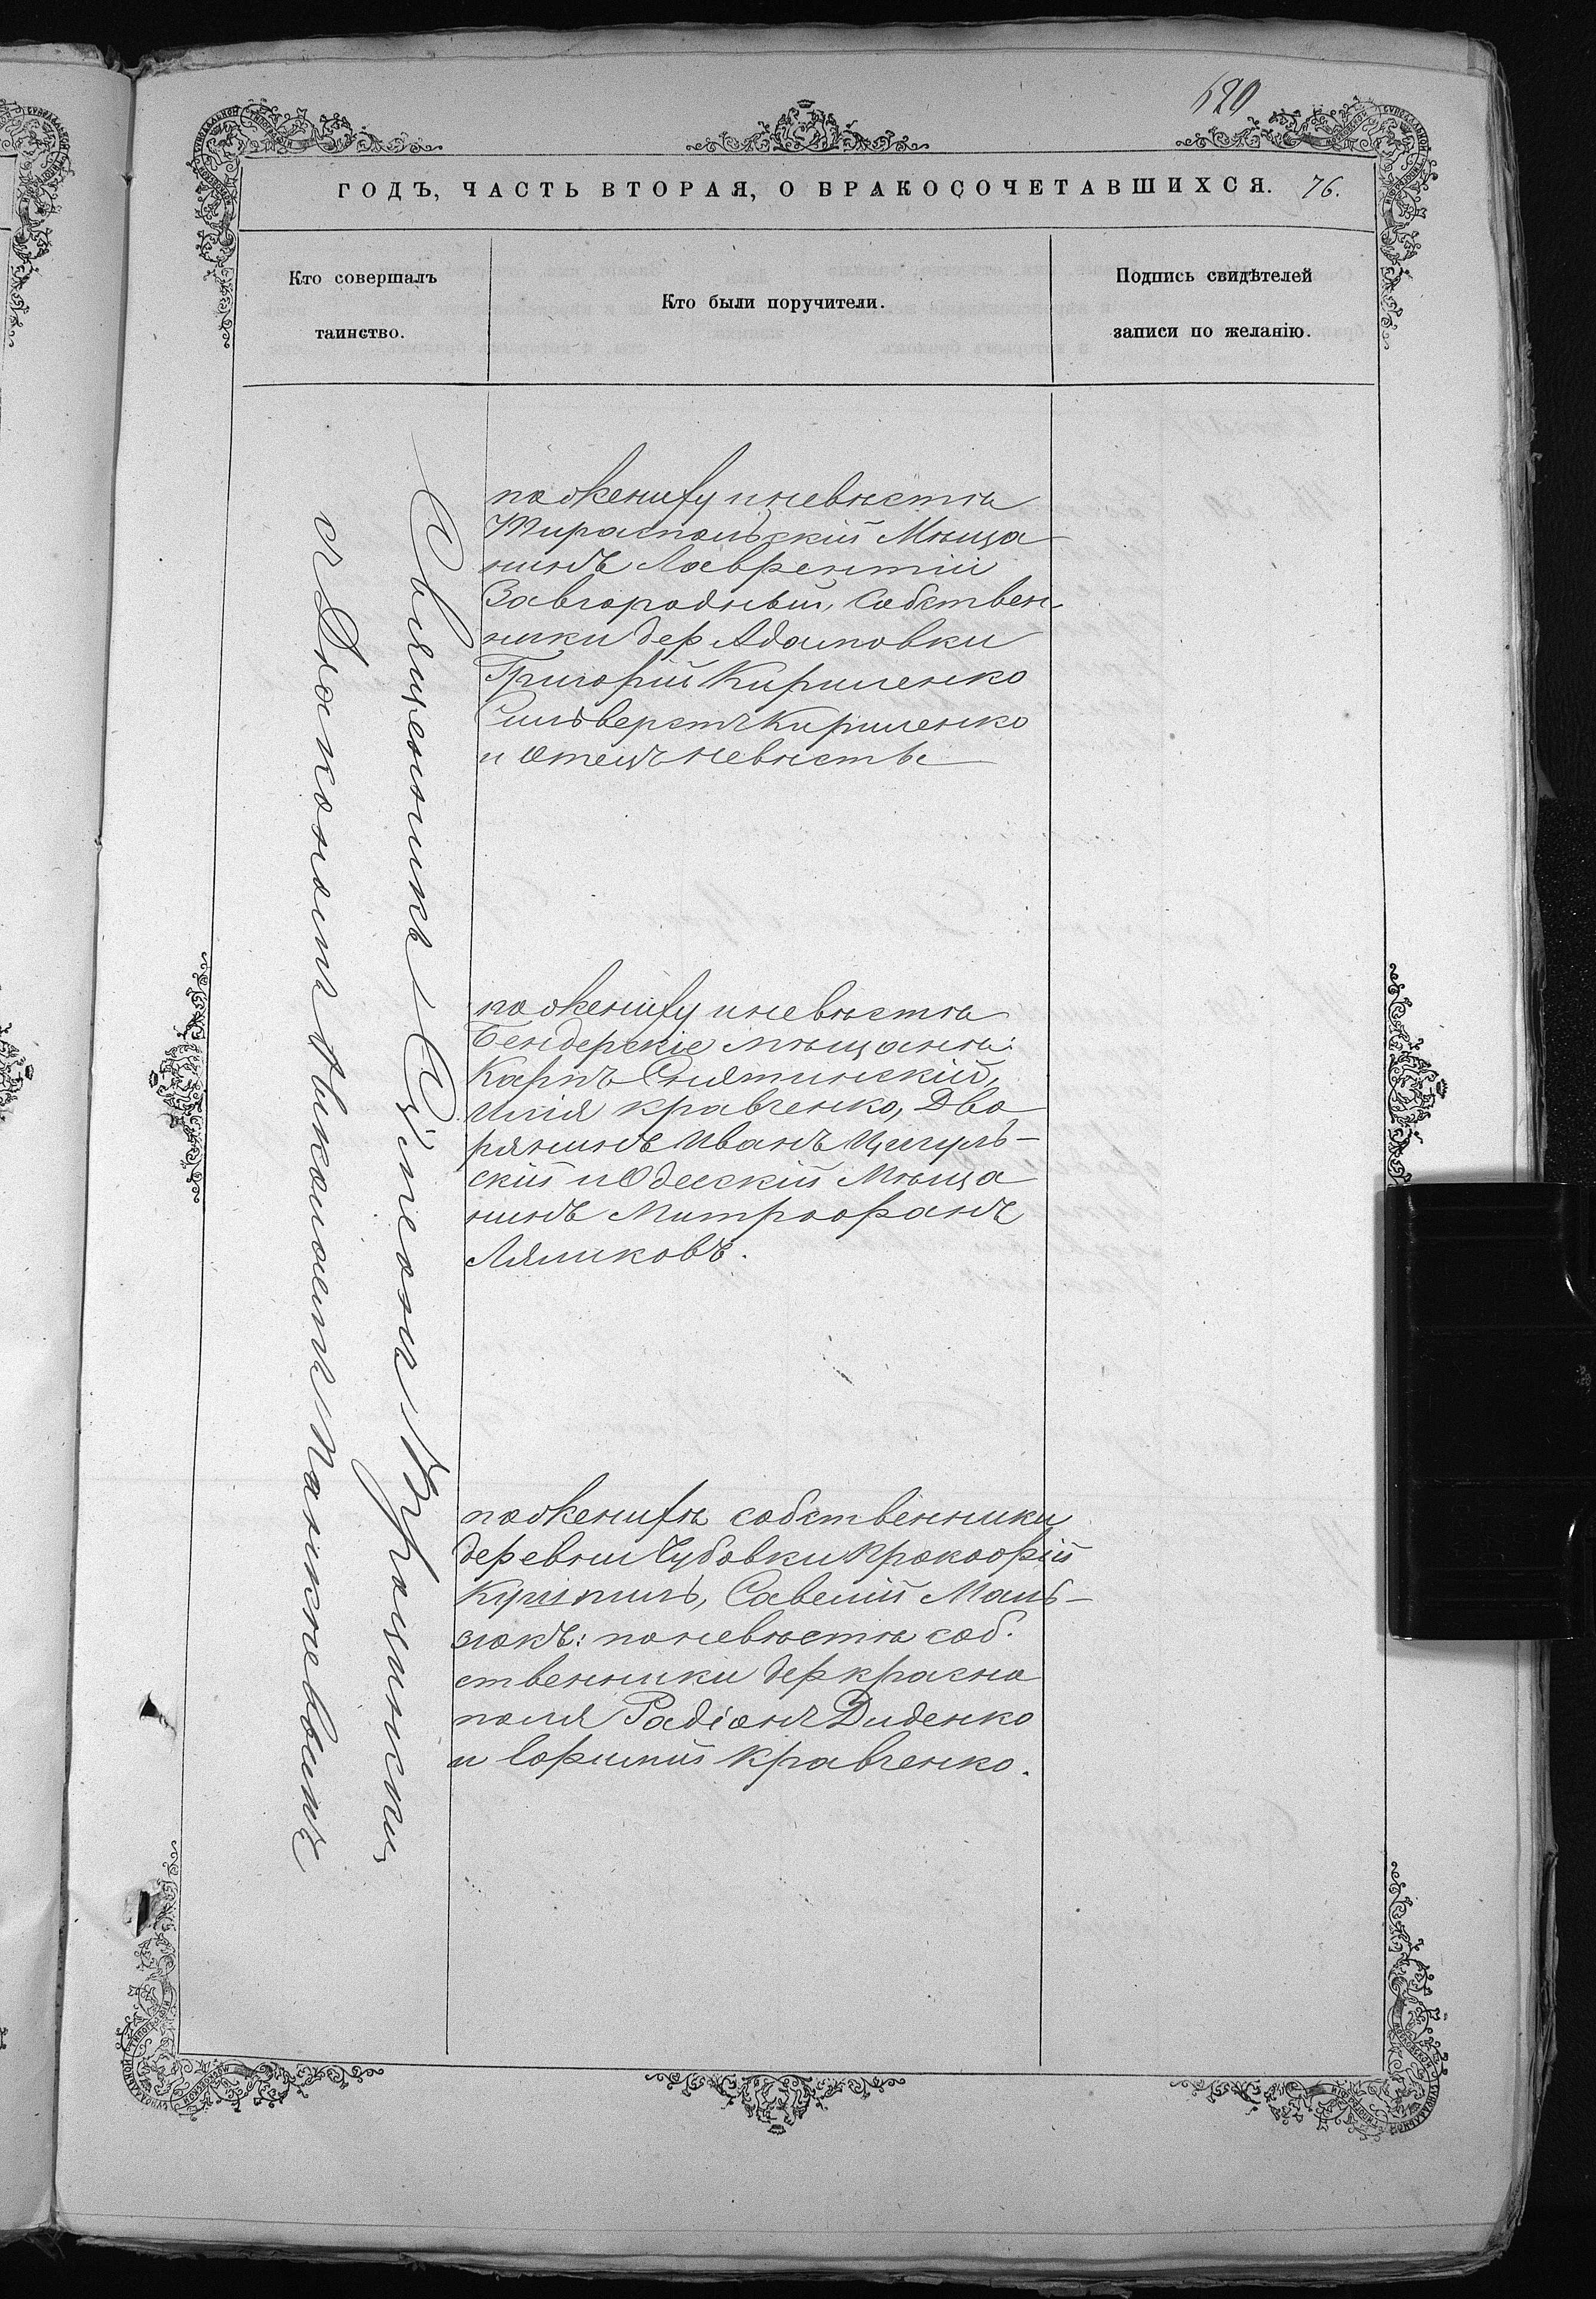 ГОДЪ, ЧАСТЬ ВТОРАЯ, О БРАКОСОЧЕТАВШИХСЯ. 76.
Кто совершалъ
таинство.
Кто были поручители.
Подпись свидѣтелей
записи по желанію.
Священникъ Сѵмеонъ
съ Діакономъ
по жениху и невѣстѣ
Тираспольскій Мѣща
нинъ Лаврентій
Завгородный, Собствен-
ники дер Адамовки
Григорій Кириленко
Сильверстъ Кириленко
и Отецъ невѣсты
по жениху и невѣстѣ
Бендерскіе мѣщане:
Карпъ Снятинскій,
Илія Кравченко, Дво
рянинъ Иванъ
скій и Одесскій Мѣща
нинъ Митрофанъ
Ляликовъ.
по женихѣ собственники
деревни Чубовки Прокофій
Савелій Маль-
зюкъ: по невѣстѣ соб-
ственники дер Красно
поля Радіонъ Диденко
и Ефимій Кравченко.